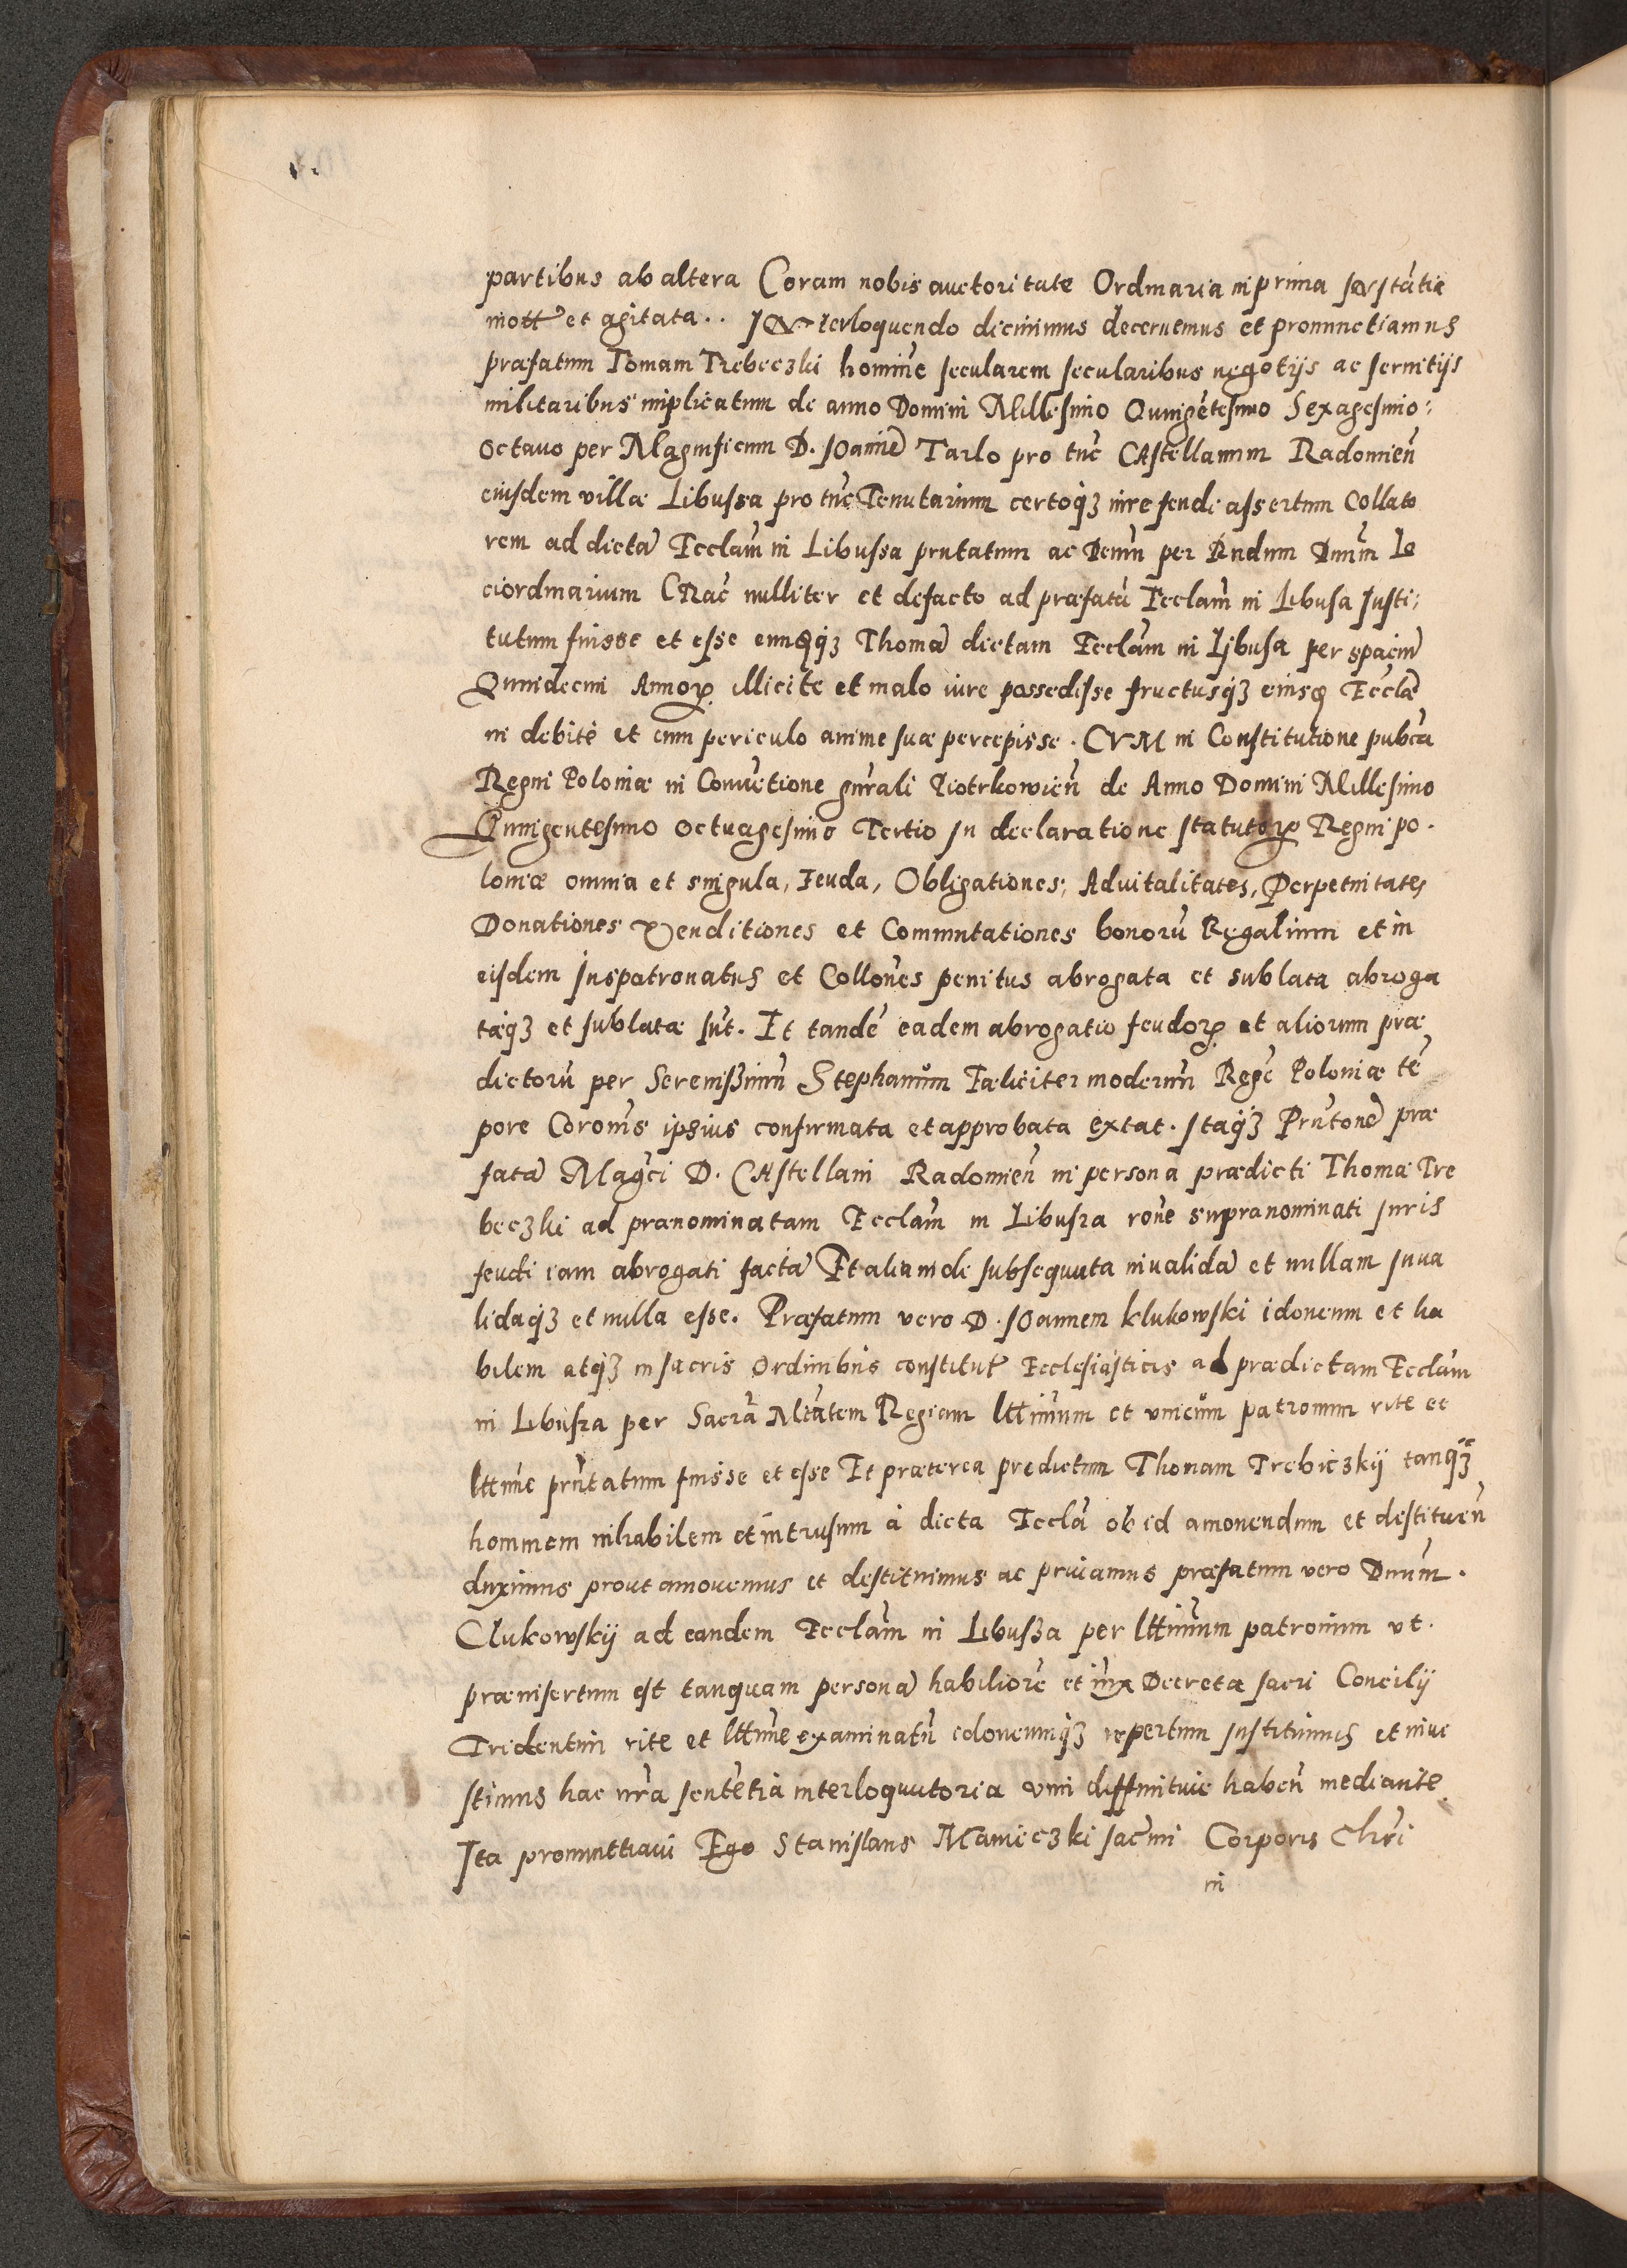 partibus ab altera Coram nobis auctoritate Ordinaria in prima Instãtia
mott̃ et agitata.. INterloquendo decinimus decernemus et pronunctiamus
præfatum Tomam Trebeczki hominẽ secularem secularibus negotijs ac seruitijs
militaribus implicatum de anno Domini Millesimo Quingẽtesimo Sexagesimo:
Octauo per Magnificum D. Joannẽ Tarlo pro tũc CAstellanum Radomieñ
eiusdem villæ Libussa pro tũc Tenutarium certoq̃3 iure feudi assertum Collato
rem ad dictã Eccl̃am in Libussa pñtatum ac Demũ per Rñdum Dnũm Lo
ciordinarium CRac̃ nulliter et defacto ad præfatã Eccl̃am in Libusa Insti:
tutum fuisse et esse eumq3 Thomã dictam Eccl̃am in Lijbusa per spaciũ
Quindecim Annoꝝ illicite et malo iure possedisse fructusq̃3 eiusq̃ Eccl̃æ
in debitè et cum periculo animæ suæ percepisse. CVM in Constitutione pub̃ca
Regni Poloniæ in Convẽtione gñrali Piotrkowieñ de Anno Domini Millesimo
Quingentesimo octuagesimo Tertio In declaratione statutoꝝ Regni po.
loniæ omnia et singula, Feuda, Obligationes, Aduitalitates, Perpetuitates
Donationes Venditiones et Commutationes bonorũ Regalium et in
eisdem Iuspatronatus et Colloñes penitus abrogata et sublata abroga
tæq̃3 et sublatæ sũt. Et tandẽ eadem abrogatio feudoꝝ et aliorum præ
dictorũ per Sereniss̃imũ Stephanũm Fæliciter modernũ Regẽ Poloniæ tẽ
pore Coroñis ipsius confirmata et approbata extat. Itaq̃3 Pñtonẽ præ
fatã Mag̃ci D. CAstellani Radomieñ in persona prædicti Thomæ Tre
beczki ad prænominatam Eccl̃am in Libusza roñe supranominati Iuris
feudi iam abrogati factã Et alia inde subsequuta inualidã et nullam Inua
lidaq̃3 et nulla esse. Præfatum vero D. Joannem klukowski idoneum et ha
bilem atq̃3 in sacris Ordinibus constitut̃ Ecclesiasticis ad prædictam Eccl̃am
in Libusza per Sacrã Mtãtem Regiam ltt̃imum et vnicũm patronum rite et
ltt̃ime pñtatum fuisse et esse Et præterea predictum Thomam Trebiczkij tanq̃3
hominem inhabilem et intrusum à dicta Eccl̃a ob id amouendum et destituen̄
duximus prout amouemus et destituimus ac priuamus præfatum vero Dnũm.
Clukowskij ad eandem Eccl̃am in Libusza per ltt̃imum patronum vt.
præinsertum est tanquam personã habiliorẽ et iux̃ Decreta sacri Concilij
Tridentini rite et ltt̃ime examinatũ idoneumq̃3 repertum Instituimus et inue
stimus hac nr̃a sentẽtia interloquutoria vim diffinituiæ habeñ mediante.
Ita pronunttiaui Ego Stanislaus Manieczki sac̃mi Corporis Chr̃i
in